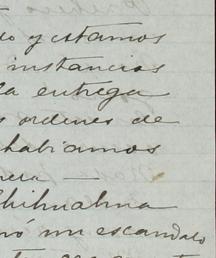 do y estamos
instancias
la entrega
s ordenes de
habiamos
Chihuahua
mó un escandalo